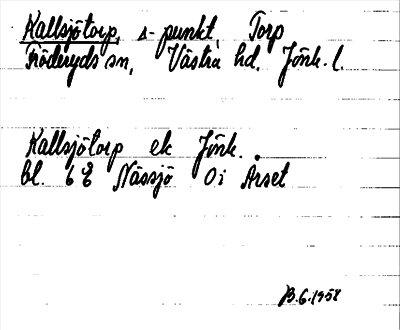 Kallsjötorp, s-punkt, Torp
Fröderyds sn, Västra hd. Jönk. l.
Kallsjötorp ek Jönk.
bl. 6 E Nässjö 0i Årset
B.6.1958